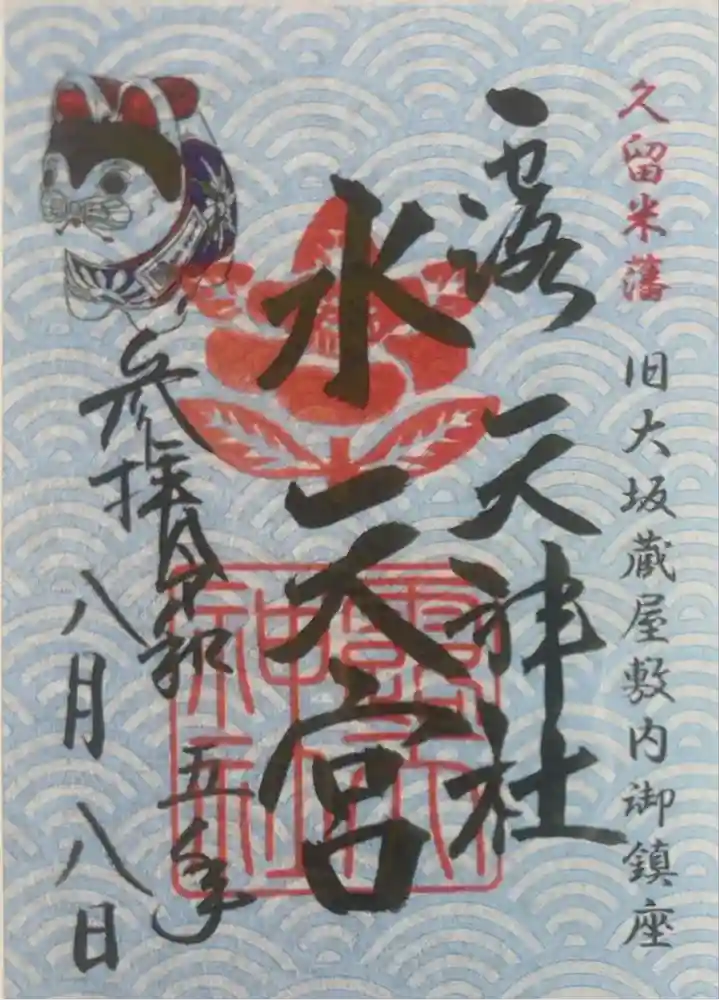 久留米藩 旧大坂蔵屋敷内御鎮座
露 天神社
水天宮
参拝 令和 五年
八月 八日